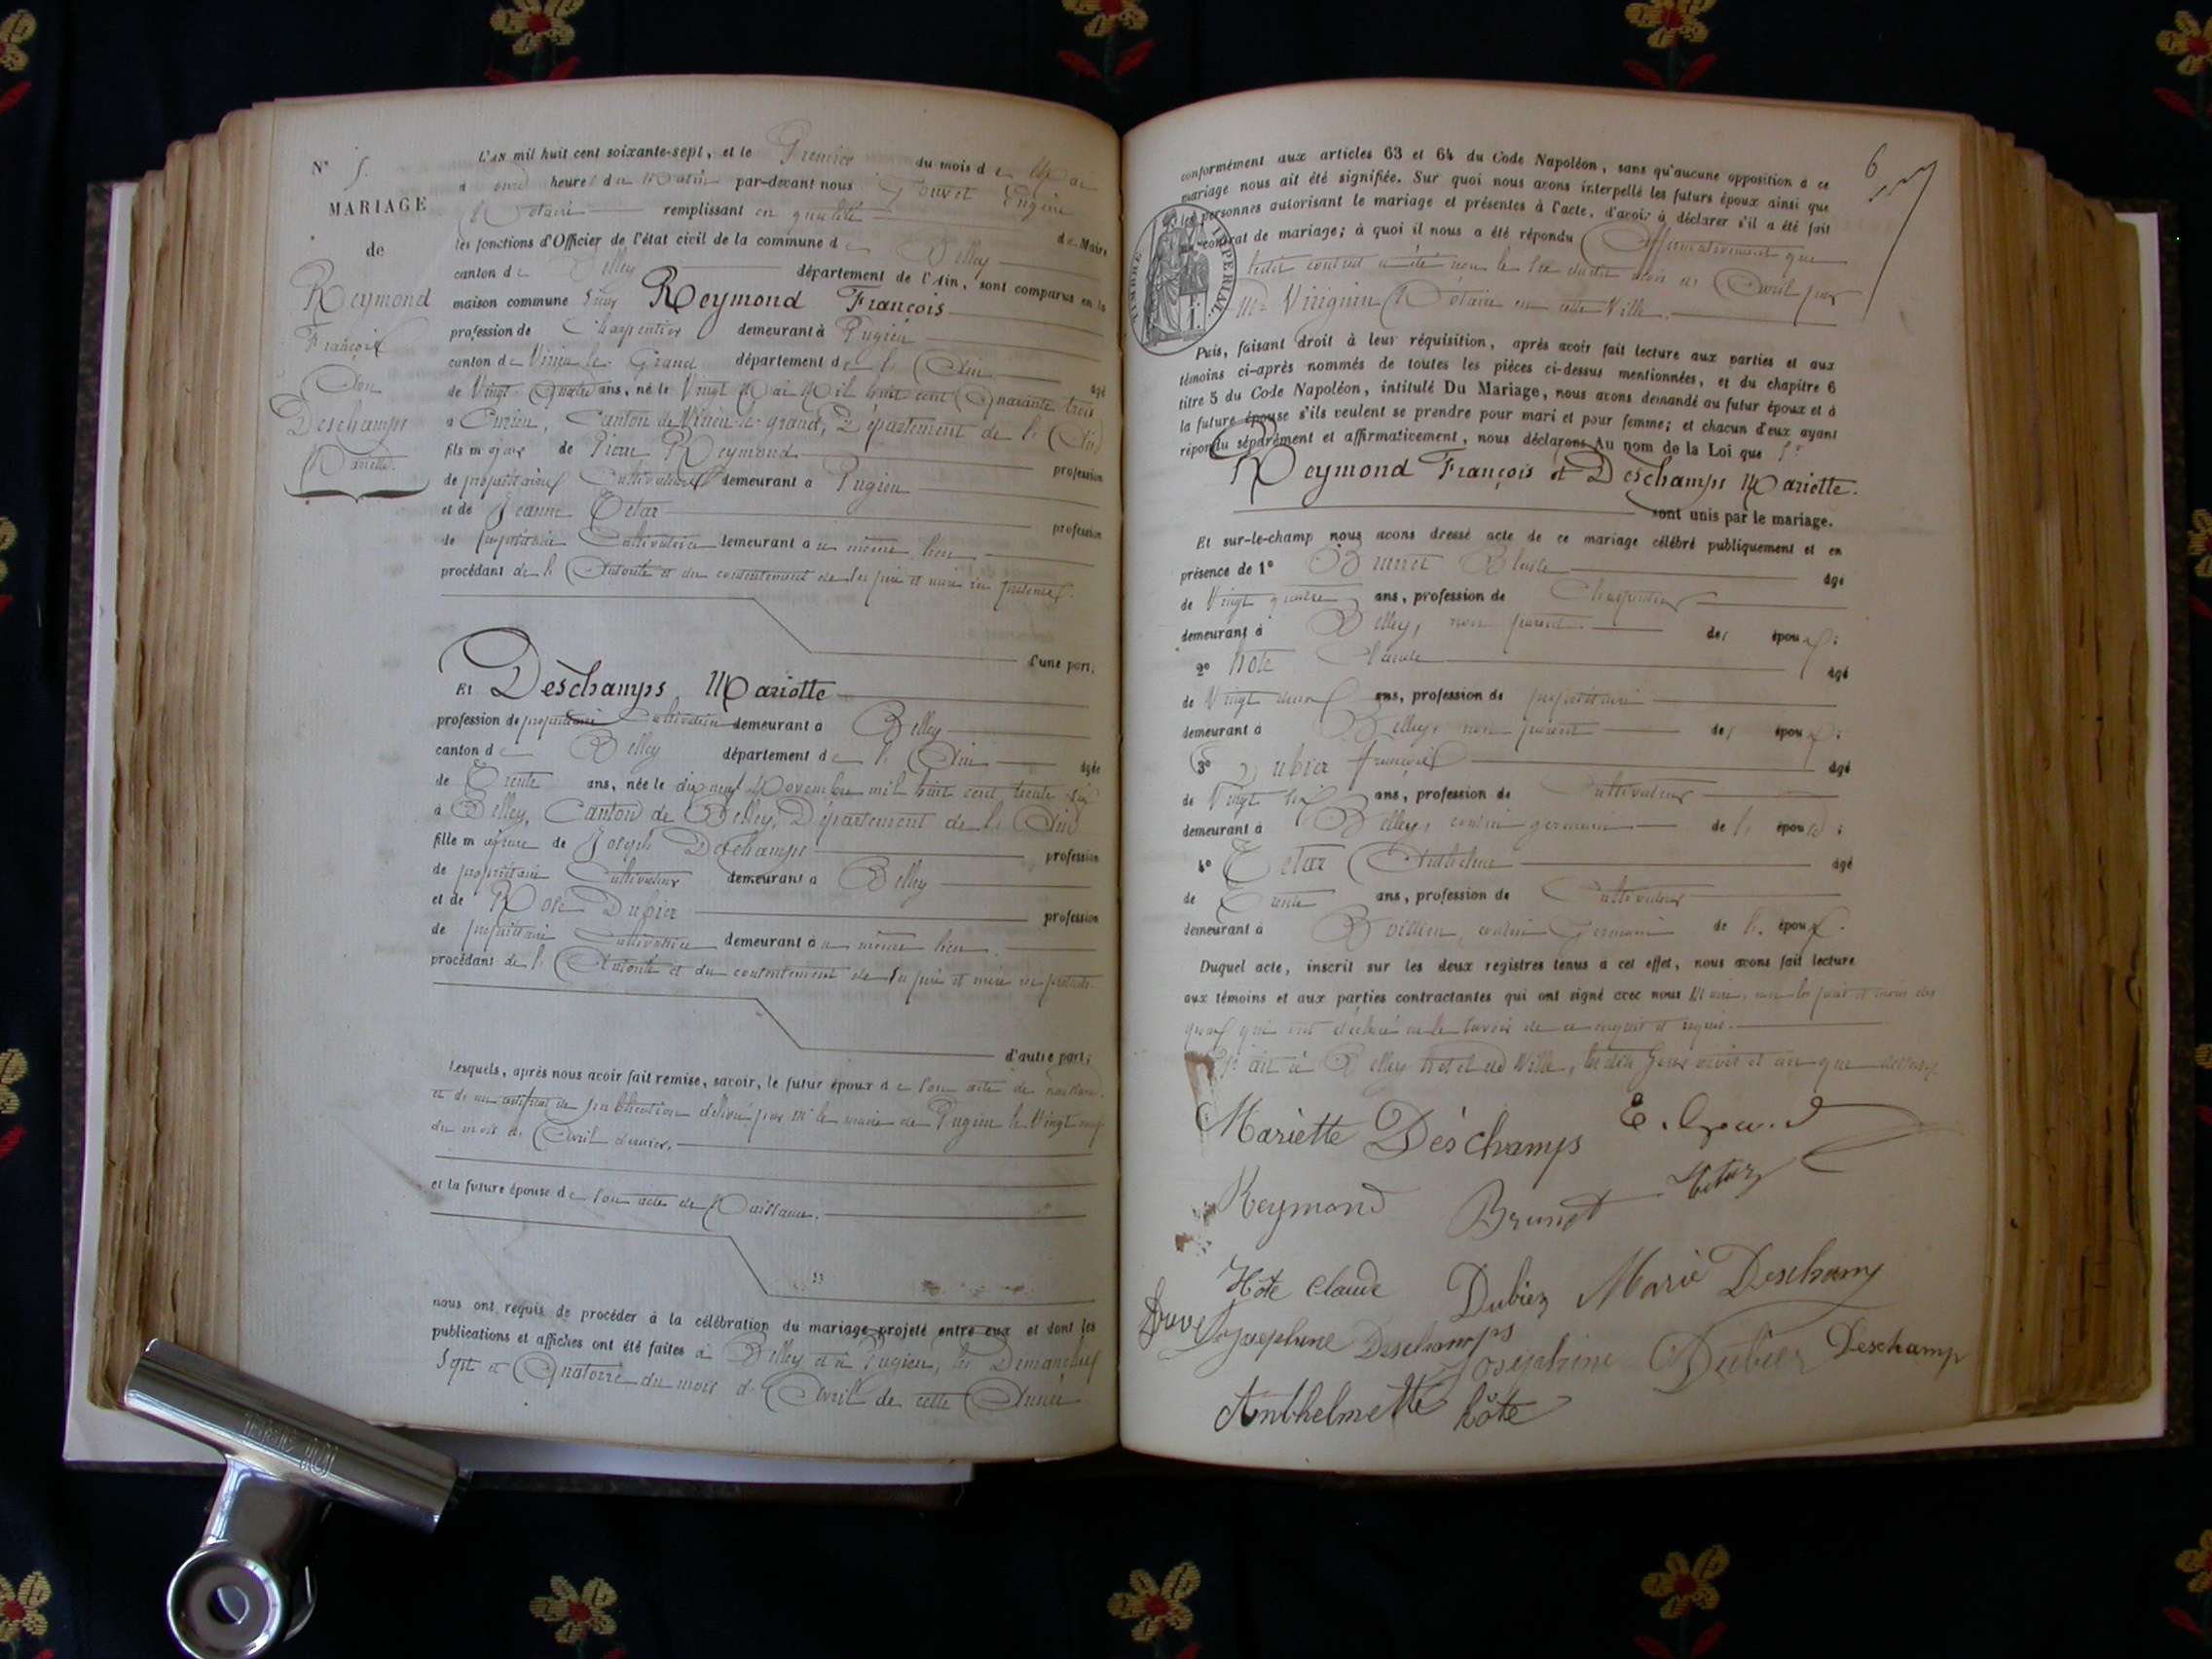 N° 5.
MARIAGE
de
Reymond
François
Deschamps
Mariette.
L'AN mil huit cent soixante-sept, et le Premier du mois de Mai
à onze heures du Matin par-devant nous Eugène
Notaire remplissant en qualité de Maire
les fonctions d'Officier de l'état civil de la commune de Belley
canton de Belley département de l'Ain, sont comparus en la
maison commune Sieur Reymond François
profession de Charpentier demeurant à Pugieu
canton de Virieu le Grand département de l'Ain âgé
de Vingt Quatre ans, né le Vingt Mai Mil huit cent Quarante trois
à Canton de Virieu-le-grand, Département de l'Ain
fils majeur de Pierre Reymond profession
de propriétaire Cultivateur demeurant à Pugieu
et de Jeanne Tetaz profession
de propriétaire Cultivatrice demeurant au même lieu
procédant de l'Autorité et du consentement de ses père et mère ici présents.
d'une part,
Et Deschamps Mariette
profession de propriétaire Cultivatrice demeurant à Belley
canton de Belley département de l'Ain âgée
de Trente ans, née le dix neuf Novembre mil huit cent trente six
à Belley, Canton de Belley, Département de l'Ain
fille majeure de Joseph Deschamps profession
de propriétaire Cultivateur demeurant à Belley
et de Rose Dubiez profession
de propriétaire Cultivatrice demeurant au même lieu.
procédant de l'Autorité et du consentement de ses père et mère ici présents.
d'autre part;
Lesquels, après nous avoir fait remise, savoir, le futur époux de son acte de naissance,
et de un certificat de publication délivré par Mr le maire de Pugieu le Vingt neuf
du mois d'Avril dernier.
et la future épouse de son acte de Naissance.
nous ont requis de procéder à la célébration du mariage projeté entre eux et dont les
publications et affiches ont été faites à Belley et à Pugieu, les Dimanches
Sept et Quatorze du mois d'Avril de cette Année
6
TIMBRE IMPERIAL
conformément aux articles 63 et 64 du Code Napoléon, sans qu'aucune opposition à ce
mariage nous ait été signifiée. Sur quoi nous avons interpellé les futurs époux ainsi que
les personnes autorisant le mariage et présentes à l'acte, d'avoir à déclarer s'il a été fait
un contrat de mariage; à quoi il nous a été répondu Affirmativement que
ledit contrat a été reçu le dudit mois d'Avril par
Me Viriguin Notaire en cette Ville.
Puis, faisant droit à leur réquisition, après avoir fait lecture aux parties et aux
témoins ci-après nommés de toutes les pièces ci-dessus mentionnées, et du chapitre 6
titre 5 du Code Napoléon, intitulé Du Mariage, nous avons demandé au futur époux et à
la future épouse s'ils veulent se prendre pour mari et pour femme; et chacun d'eux ayant
répondu séparément et affirmativement, nous déclarons Au nom de la Loi que
Reymond François et Deschamps Mariette.
sont unis par le mariage.
Et sur-le-champ nous avons dressé acte de ce mariage célébré publiquement et en
présence de 1° Brunet âgé
de Vingt quatre ans, profession de Charpentier
demeurant à Belley, non parent des époux;
2° Hote Claude âgé
de Vingt deux ans, profession de propriétaire
demeurant à Belley, non parent des époux;
3° Dubiez françois âgé
de Vingt six ans, profession de Cultivateur
demeurant à Belley, cousin germain de l'épouse;
4° Tetaz Anthelme âgé
de Trente ans, profession de Cultivateur
demeurant à cousin Germain de l'époux.
Duquel acte, inscrit sur les deux registres tenus à cet effet, nous avons fait lecture
aux témoins et aux parties contractantes qui ont signé avec nous Maire, non les père et mère des
époux qui ont déclaré ne le savoir de ce enquis et requis.
Fait à Belley hotel de Ville, les dits Jour mois et an que dessus
Mariette Deschamps
Reymond Brunet Tetaz
Hôte Claude Dubiez Marie Deschamps
Josephine Deschamps Josephine Dubiez Deschamp
Anthelmette hôte